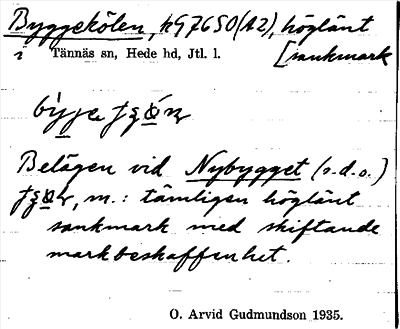 Byggekölen, k97650(A2), höglänt
i Tännäs sn, Hede hd, Jtl. l. [sankmark
Belägen vid Nybygget (s.d.o.)
m.: tämligen höglänt
sankmark med skiftande
markbeskaffenhet.
O. Arvid Gudmundson 1935.